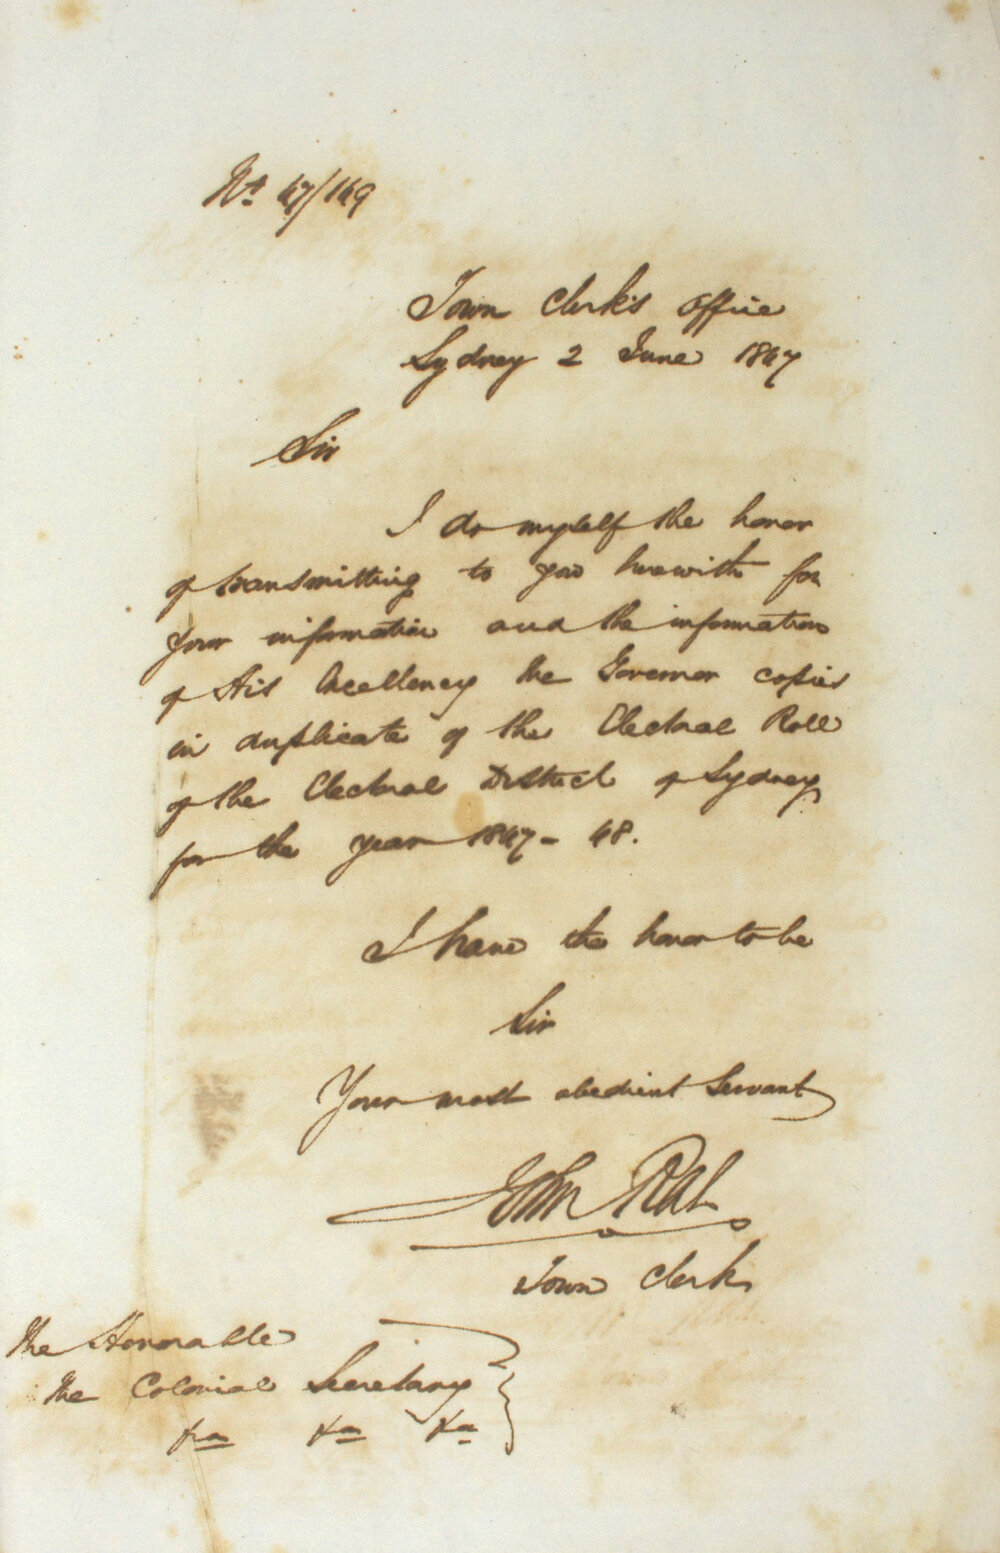 No. 47/149
Town Clerk's Office
Sydney 2 June 1847
Sir
I do myself the honor
of transmitting to you herewith for
your information and the information
of His Excellency the Governor copies
in duplicate of the Electoral Roll
of the Electoral District of Sydney
for the year 1847-48.
I have the honor to be
Sir
Your most obedient Servant
John Rae
Town Clerk
The Honorable
The Colonial Secretary
&c &c &c